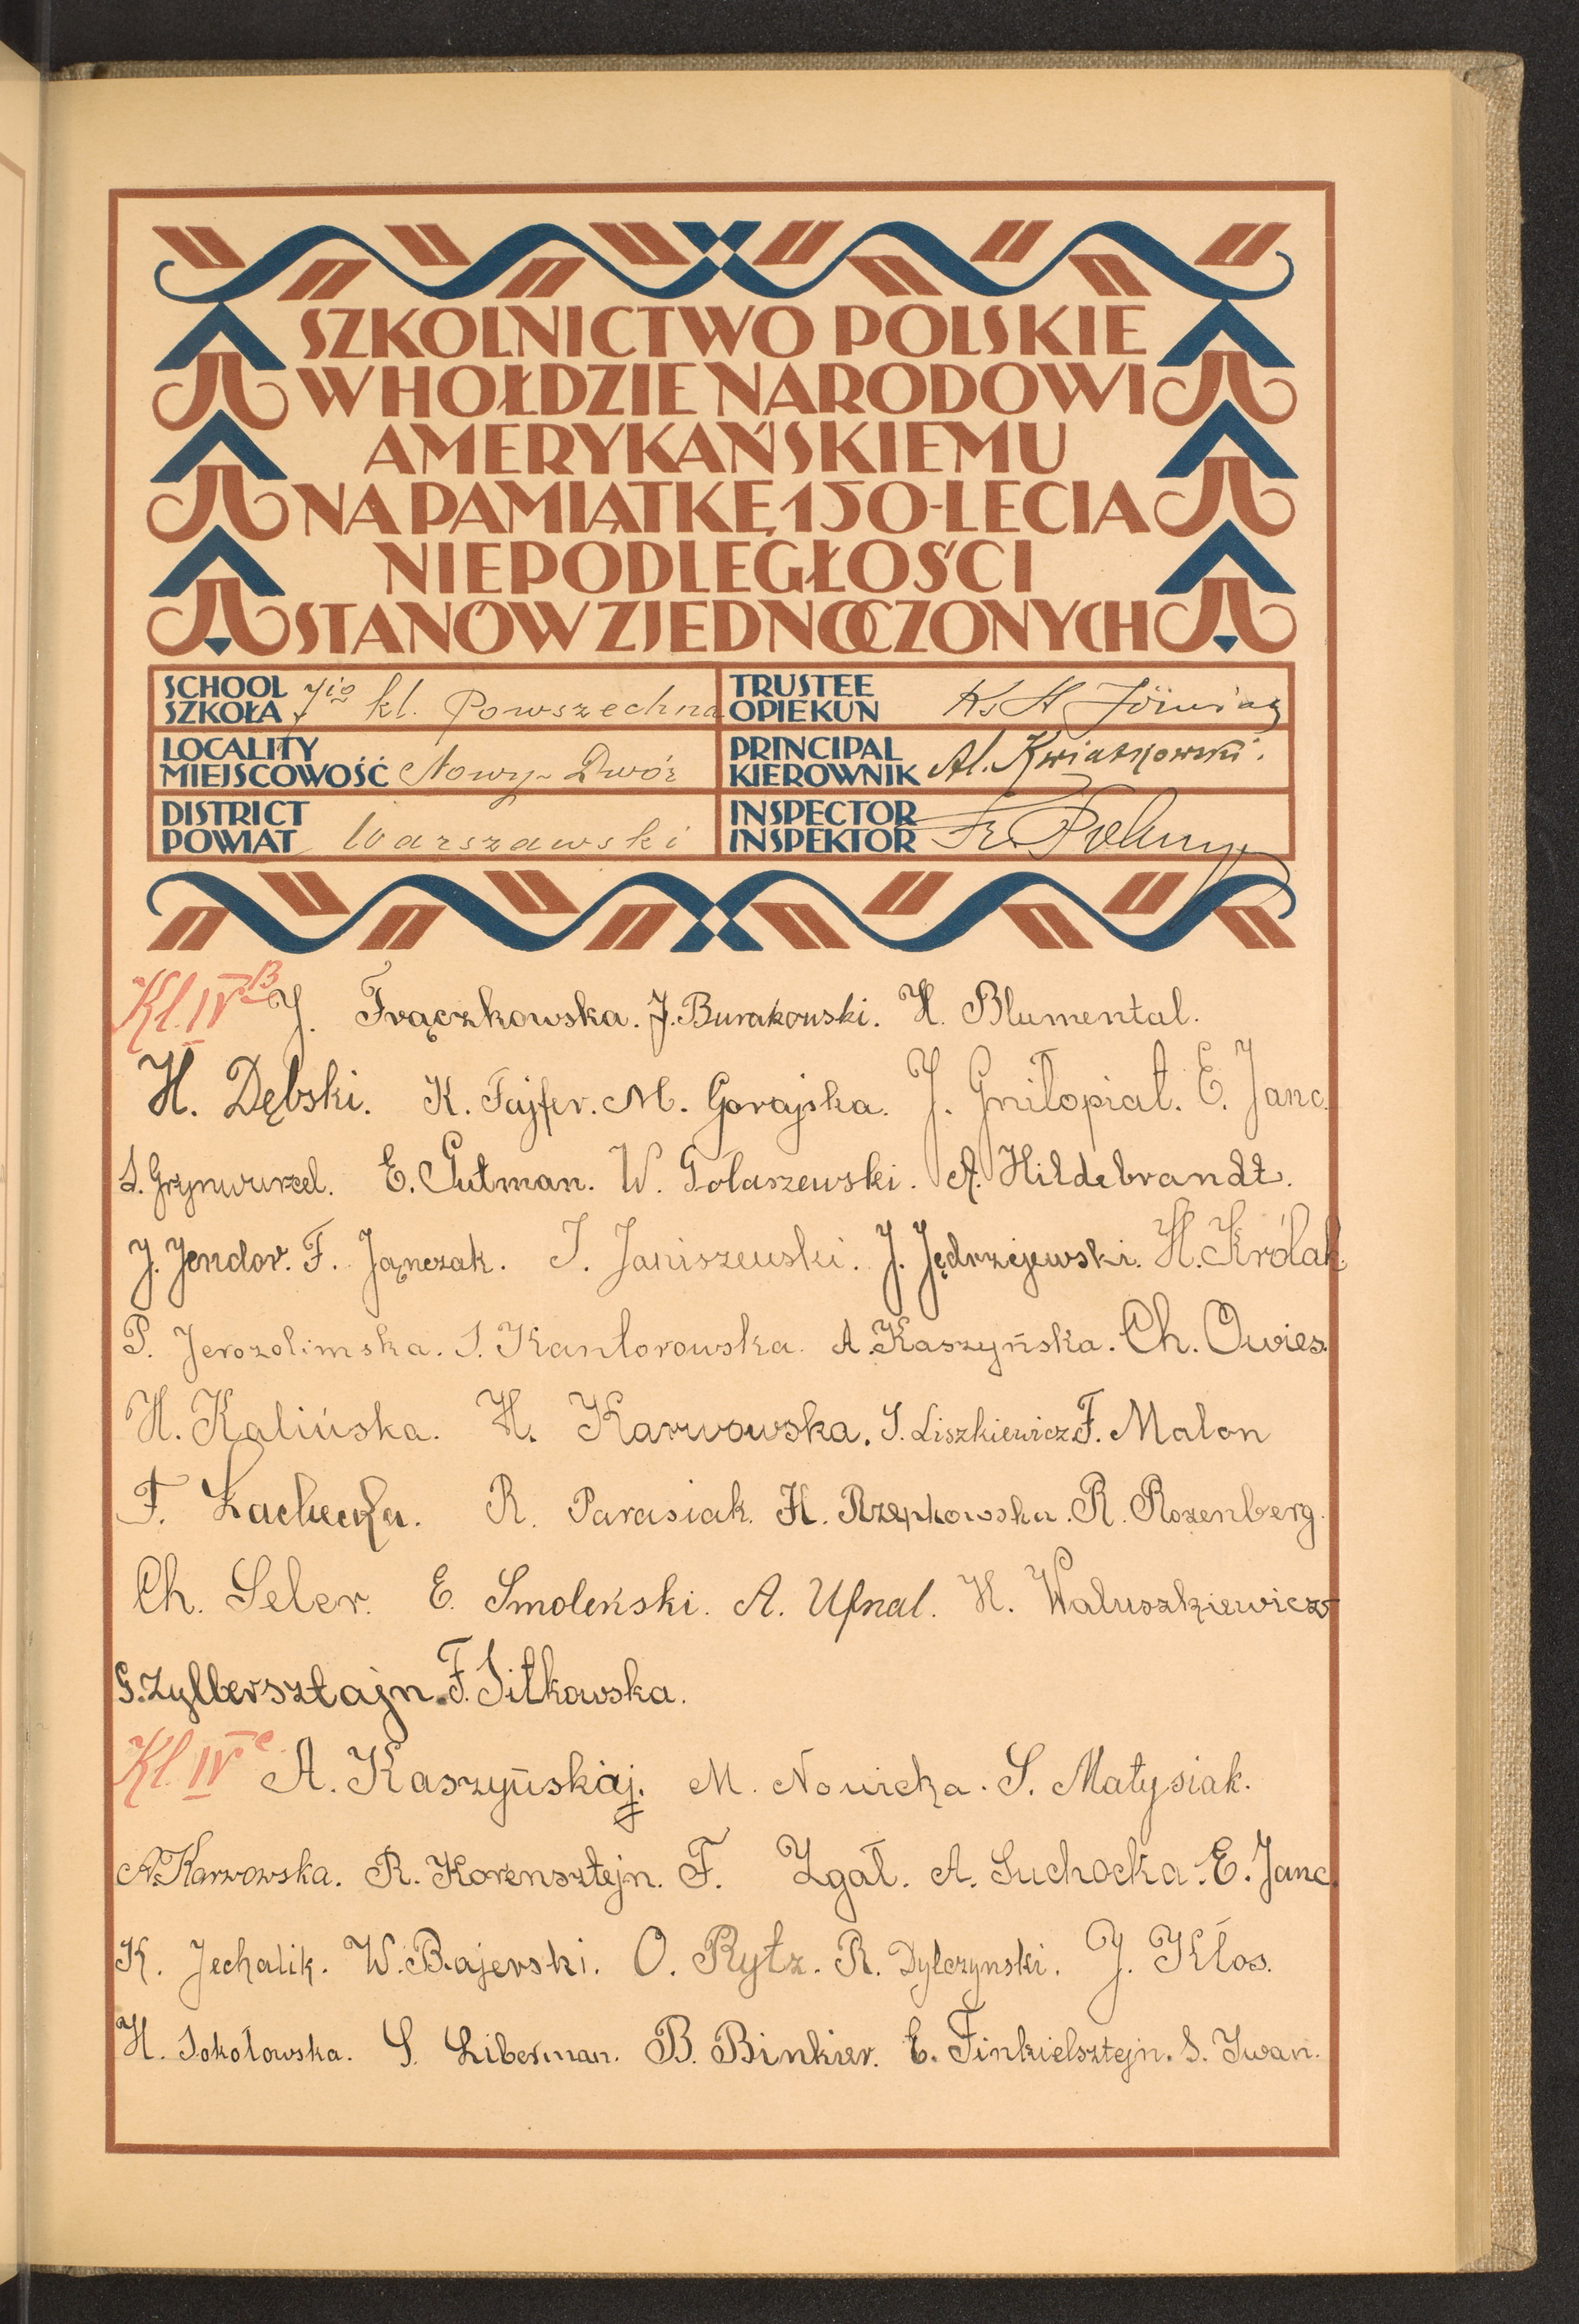 SZKOLNICTWO POLSKIE
W HOŁDZIE NARODOWI
AMERYKAŃSKIEMU
NA PAMIĄTKĘ 150-LECIA
NIEPODLEGŁOŚCI
STANÓW ZJEDNOCZONYCH
SCHOOL SZKOŁA 7io kl. Powszechna
TRUSTEE OPIEKUN Ks H
LOCALITY MIEJSCOWOŚĆ Nowy-Dwór
PRINCIPAL KIEROWNIK Al. Kwiatkowski.
DISTRICT POWIAT Warszawski
INSPECTOR INSPEKTOR Fr.
Kl. IV B J. Frączkowska. J. Burakowski. H. Blumental.
H. Dębski. K. Fajfer. M. Gorajska. J. Gniłopiat. E. Janc.
S. Grynwurzel. E. Gutman. W. Gołaszewski. A. Hildebrandt.
J. Jendor. F. Jańczak. I. Janiszewski. J. Jędrzejewski. H. Królak
P. Jerozolimska. S. Kantorowska. A. Kaszyńska. Ch. Owies.
H. Kalińska. H. Karwowska. I. Liszkiewicz F. Malon
F. Łachecka. R. Parasiak. H. Rzepkowska. R. Rozenberg.
Ch. Seler. E. Smoleński. A. Ufnal. H. Waluszkiewicz
G. Zylbersztajn. F. Sitkowska.
Kl. IV c A. Kaszyńskaj. M. Nowicka. S. Matysiak.
A. Karwowska. R. Korensztejn. F. Zgał. A. Suchocka. E. Janc.
K. Jechalik. W. Bajerski. O. Rytz. R. Dylczynski. J. Kłos.
H. Sokołowska. S. Liberman. B. Binkier. E. Finkielsztejn. S. Iwan.